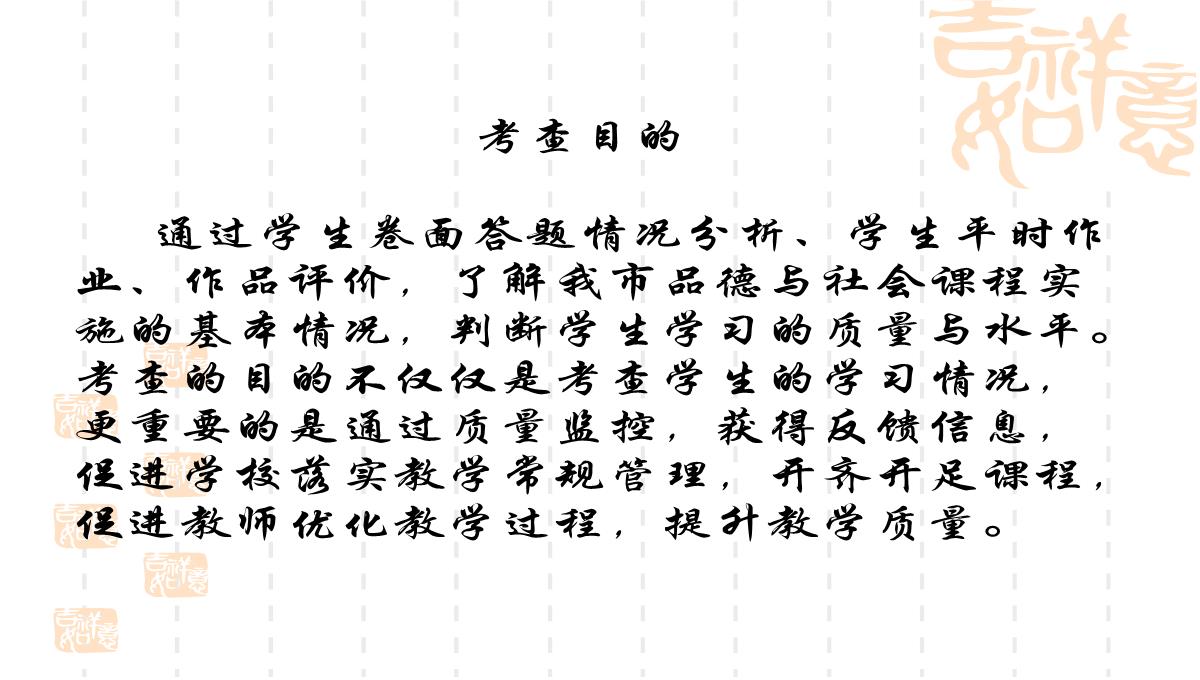 吉祥如意
考查目的
通过学生卷面答题情况分析、学生平时作
业、作品评价，了解我市品德与社会课程实
施的基本情况，判断学生学习的质量与水平。
考查的目的不仅仅是考查学生的学习情况，
更重要的是通过质量监控，获得反馈信息，
促进学校落实教学常规管理，开齐开足课程，
促进教师优化教学过程，提升教学质量。
吉祥如意
吉祥如意
吉祥如意
吉祥如意
吉祥如意
吉祥如意